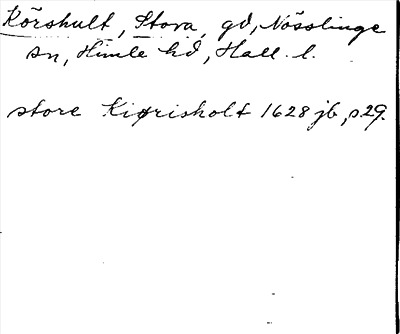 Körshult, Stora, gd, Nösslinge
sn, Himle hd, Hall. l.
store Kiørisholt 1628 jb, s 29.